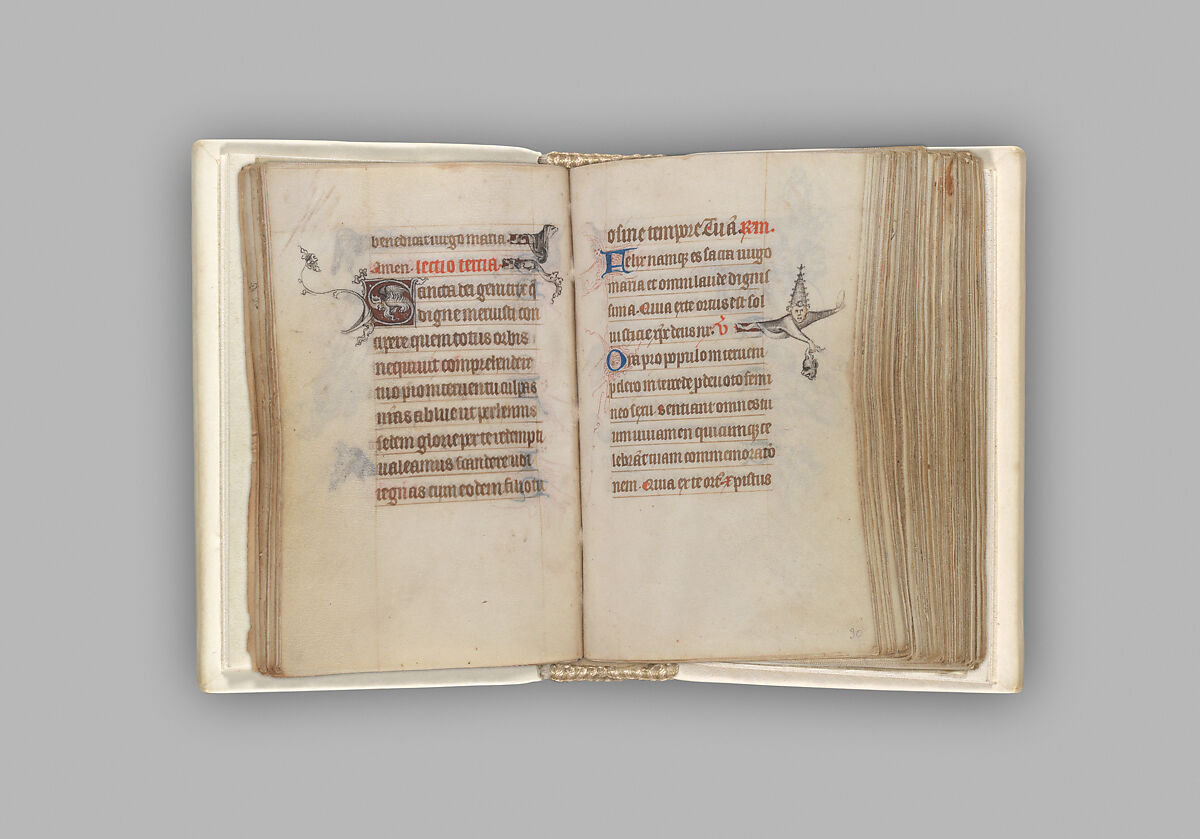 benedicat uirgo maria.
Amen. lectio tercia.
Sancta dei genitrix q̄
digne meruisti con
cipere quem totus orbis
nequiuit comprehendere
tuo pio interuentu culpas
nr̄as ablue ut perhennis
sedem glorie per te redempti
ualeamus scandere ubi
regnas cum eodem filio tu
o sine tempore Tu a. Rm.
Felix namqꝫ es sacra uirgo
maria et omni laude dignis
sima. Quia ex te ortus est sol
iusticie xp̄c deus nr̄. V̄
Ora pro populo interueni
p clero intercede p deuoto femi
neo sexu. sentiant omnes tu
um iuuamen quicumqꝫ ce
lebrāt tuam commemoratō
nem. Quia ex te ort. Xpistus
90